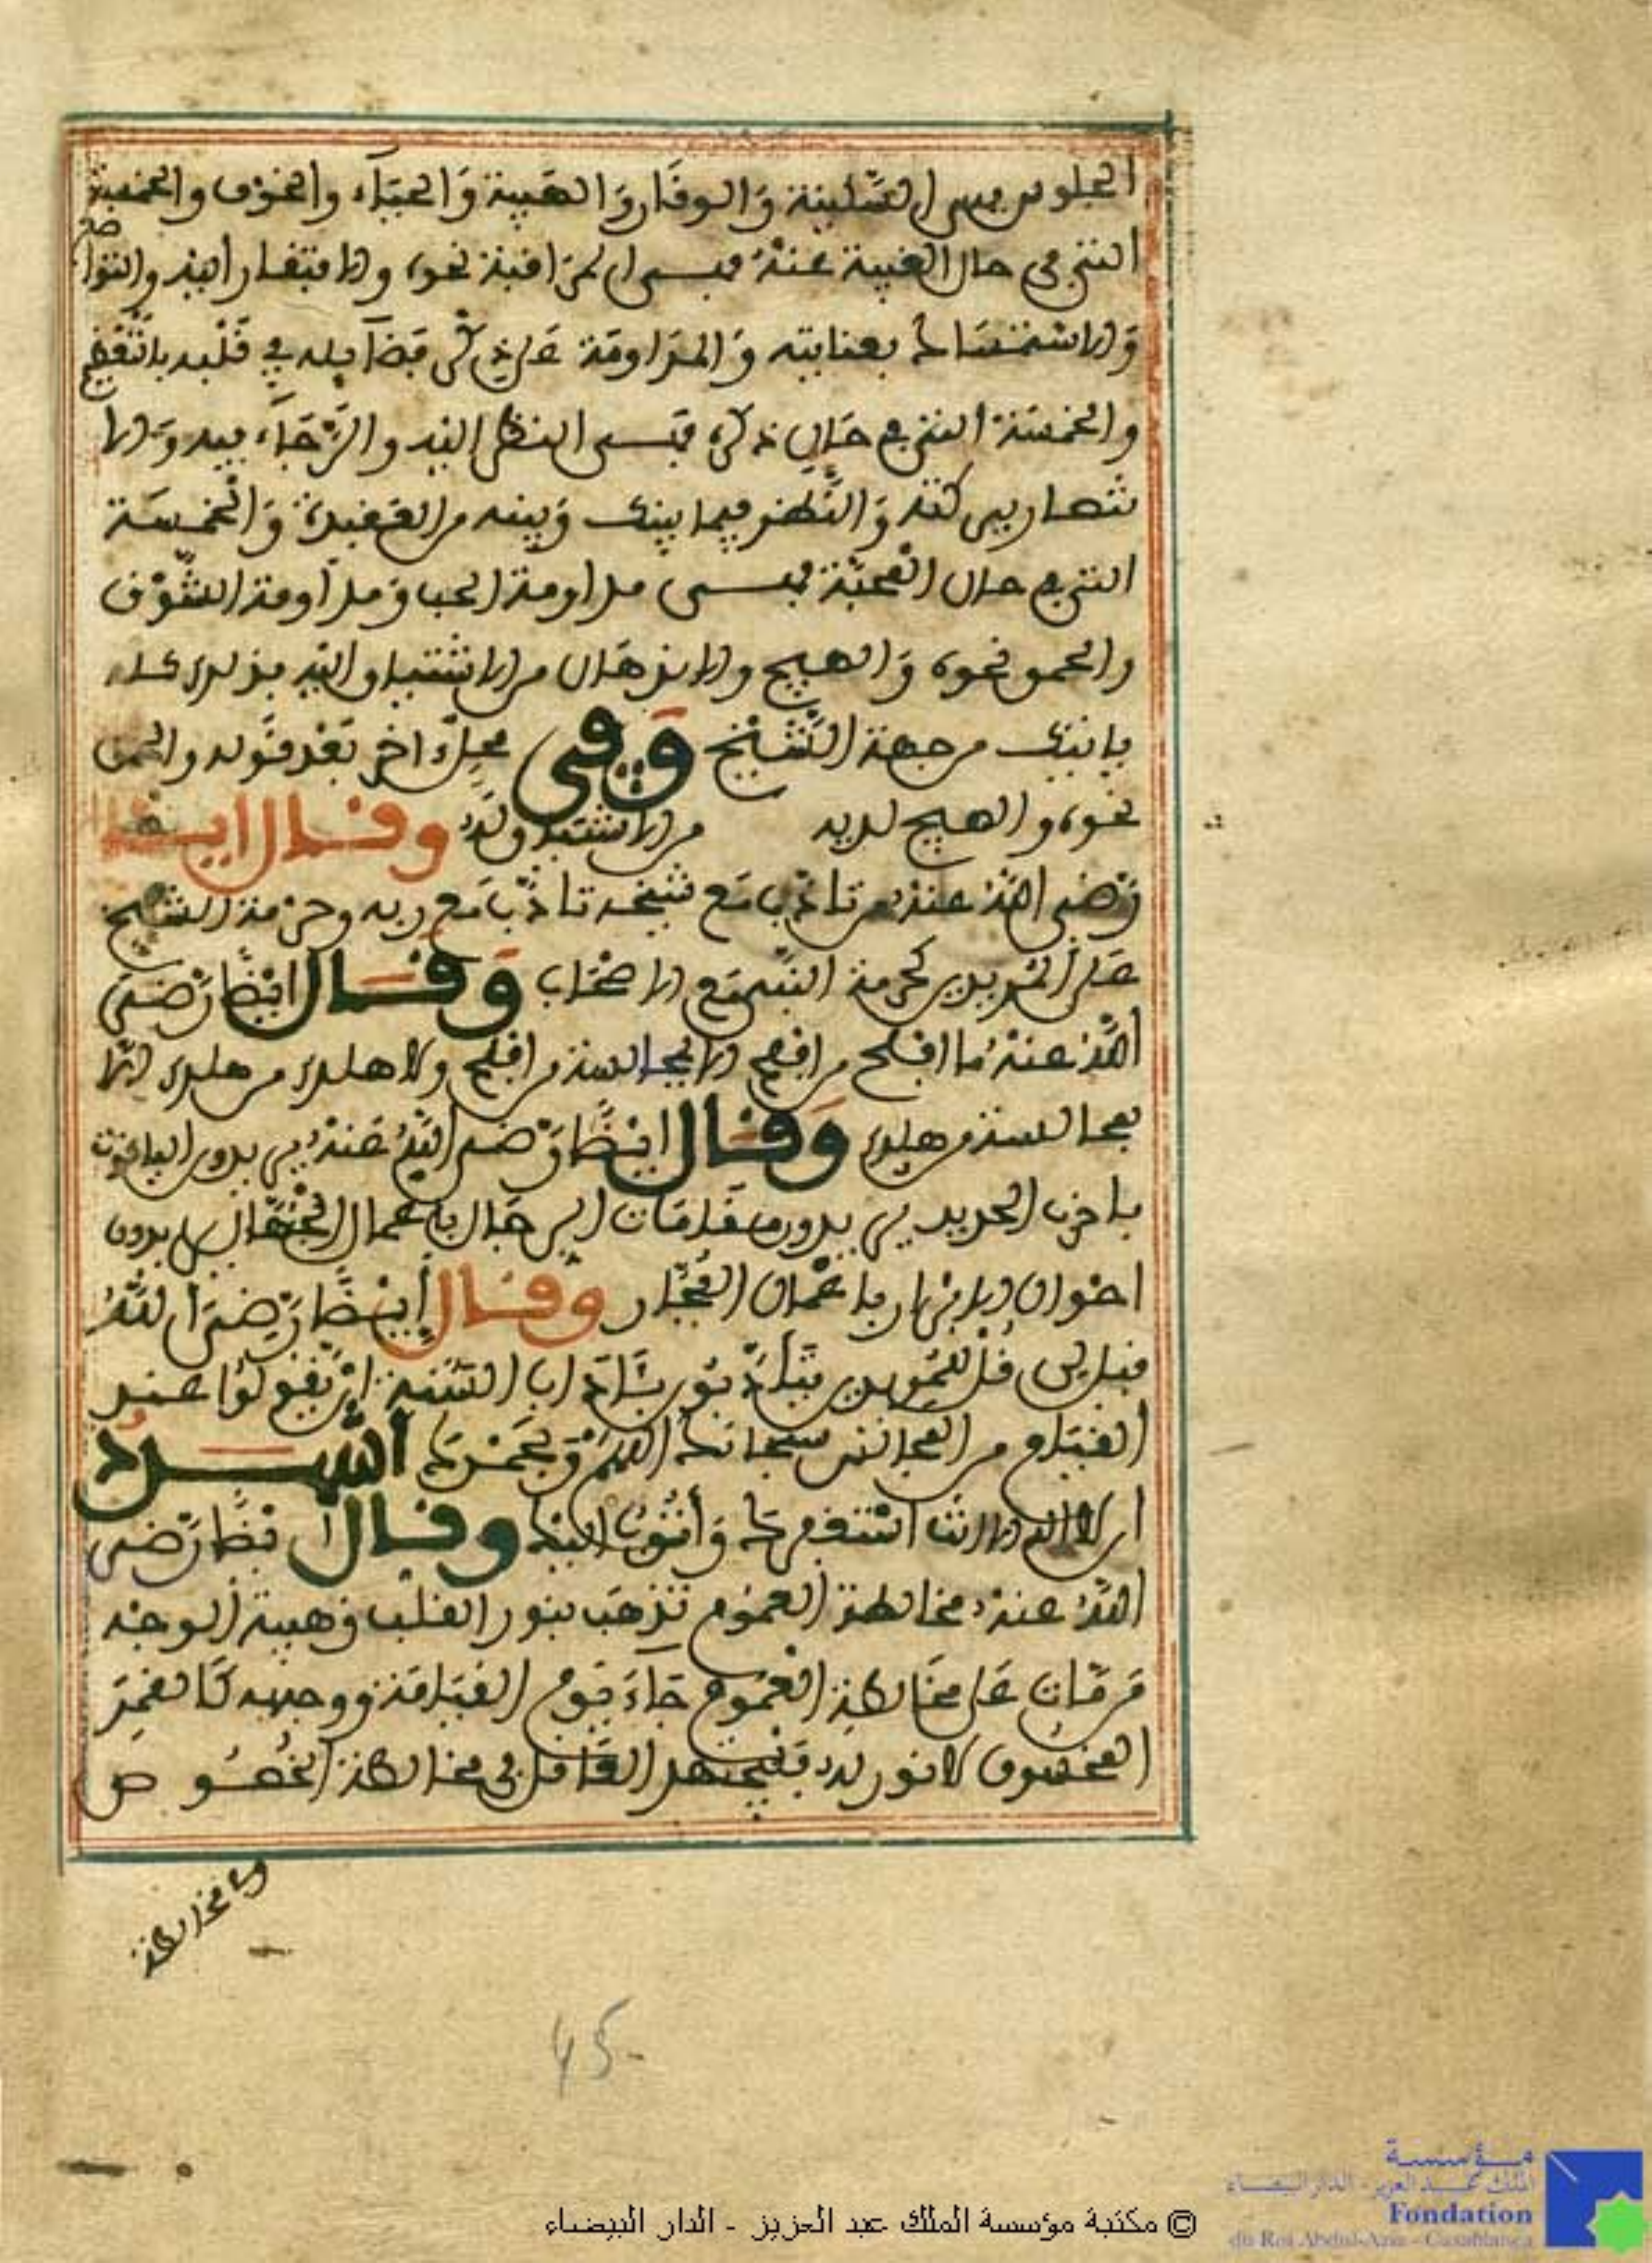 الجلوس فهى السكينة والوقار والهيبة والحياء والخوف والخمسة
التى فى حال الغيبة عنه فهى المراقبة نحوه والافتقار اليه والتواضع
والاستمساك بعنايته والمداومة على ذكر فضائله فى قلبه بالتعظيم
والخمسة التى فى حال ذكره فهى النظر اليه والرجاء فيه والا
نتهار بين كتفه والنظر فيما بينك وبينه من العقيدة والخمسة
التى فى حال المحبة فهى مداومة الحب ومداومة الشوق
والحمو نحوه والهيج والانزهال من الاشتياق اليه فذلك كله
ياتيك من جهة الشيخ وفى محل ءاخر بعد قوله والحمق
نحوه والهيج لديه من الاشتياق له وقال ايضا
رضى الله عنه من تادب مع شيخه تادب مع ربه وحرمة الشيخ
على المريدين كحرمة النبى مع الاصحاب وقال ايضا رضى
الله عنه ما افلح من افلح الا بمجالسة من افلح ولا هلك من هلك الا
بمجالسة من هلك وقال ايضا رضى الله عنه يريدون الياقوت
باخرب الحديد يريدون مقامات الرجال باعمال الجهال يريدون
اخوان الابرار باعمال الفجار وقال ايضا رضى الله
قيل لى قل للمريدين يتادبون بئاداب السنة ان يقولوا عند
القيام من المجالس سبحانك اللهم وبحمدك اشهد
ان لا اله الا انت استغفرك واتوب اليك وقال ايضا رضى
الله عنه مخالطة العموم تذهب بنور القلب وهيبة الوجه
من مات على مخالطة العموم جاء يوم القيامة ووجهه كالقمر
المخسوف لا نور له فليجتهد العاقل فى مخالطة الخصوص
ومخالطة
45
© مكتبة مؤسسة الملك عبد العزيز - الدار البيضاء
مؤسسة
الملك عبد العزيز - الدار البيضاء
Fondation
du Roi Abdul-Aziz - Casablanca